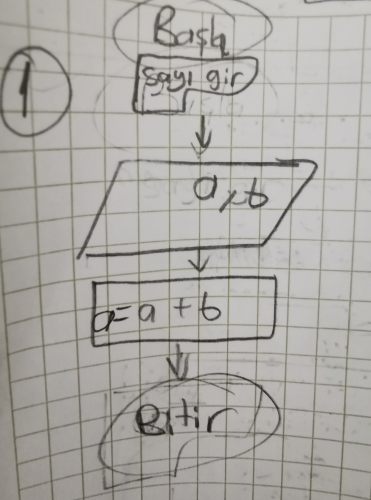 Başla
1
sayı gir
a, b
a = a + b
Bitir